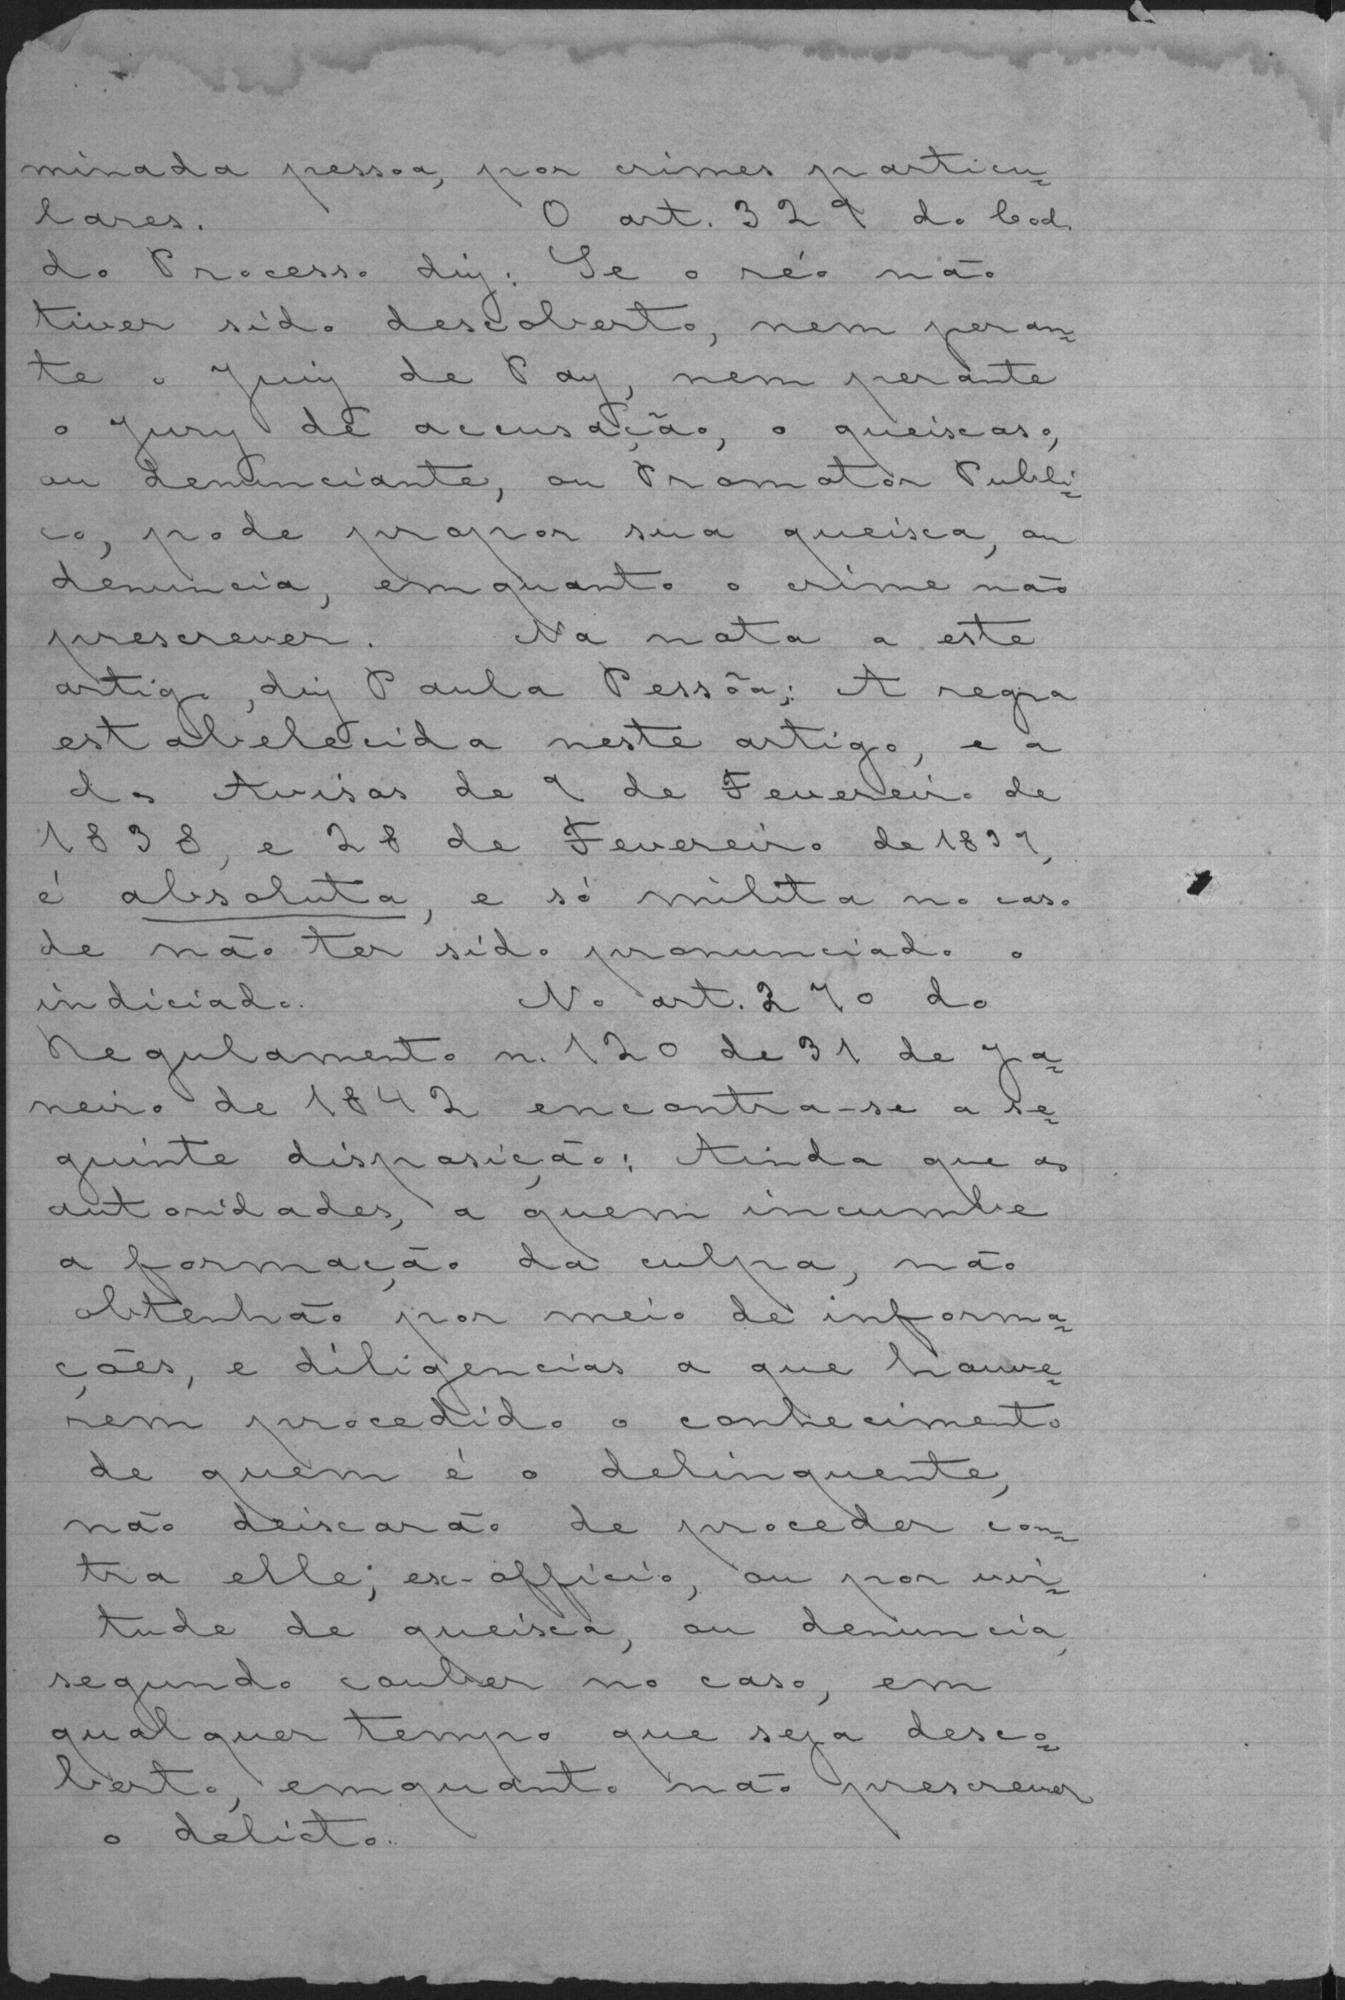 minada pessoa, por crimes particu=
lares. O art. 329 do Cod.
do Processo diz: Se o réo não
tiver sido descoberto, nem peran=
te o Juiz de Paz, nem perante
o Jury de accusação, o queixoso,
ou denunciante, ou Promotor Publi=
co, pode propor sua queixa, ou
denuncia, emquanto o crime não
prescrever. Na nota a este
artigo, diz Paula Pessôa: A regra
estabelecida neste artigo, e a
dos Avisos de 9 de Fevereiro de
1838, e 28 de Fevereiro de 1839,
é absoluta, e só milita no caso
de não ter sido pronunciado o
indiciado. No art. 270 do
Regulamento n. 120 de 31 de Ja=
neiro de 1842 encontra-se a se=
guinte disposição: Ainda que as
autoridades, a quem incumbe
a formação da culpa, não
obtenhão por meio de informa=
ções, e diligencias a que houve=
rem procedido o conhecimento
de quem é o delinquente,
não deixarão de proceder con=
tra elle; ex-officio, ou por vir=
tude de queixa, ou denuncia,
segundo couber no caso, em
qualquer tempo que seja desco=
berto, emquanto não prescrever
o delicto.